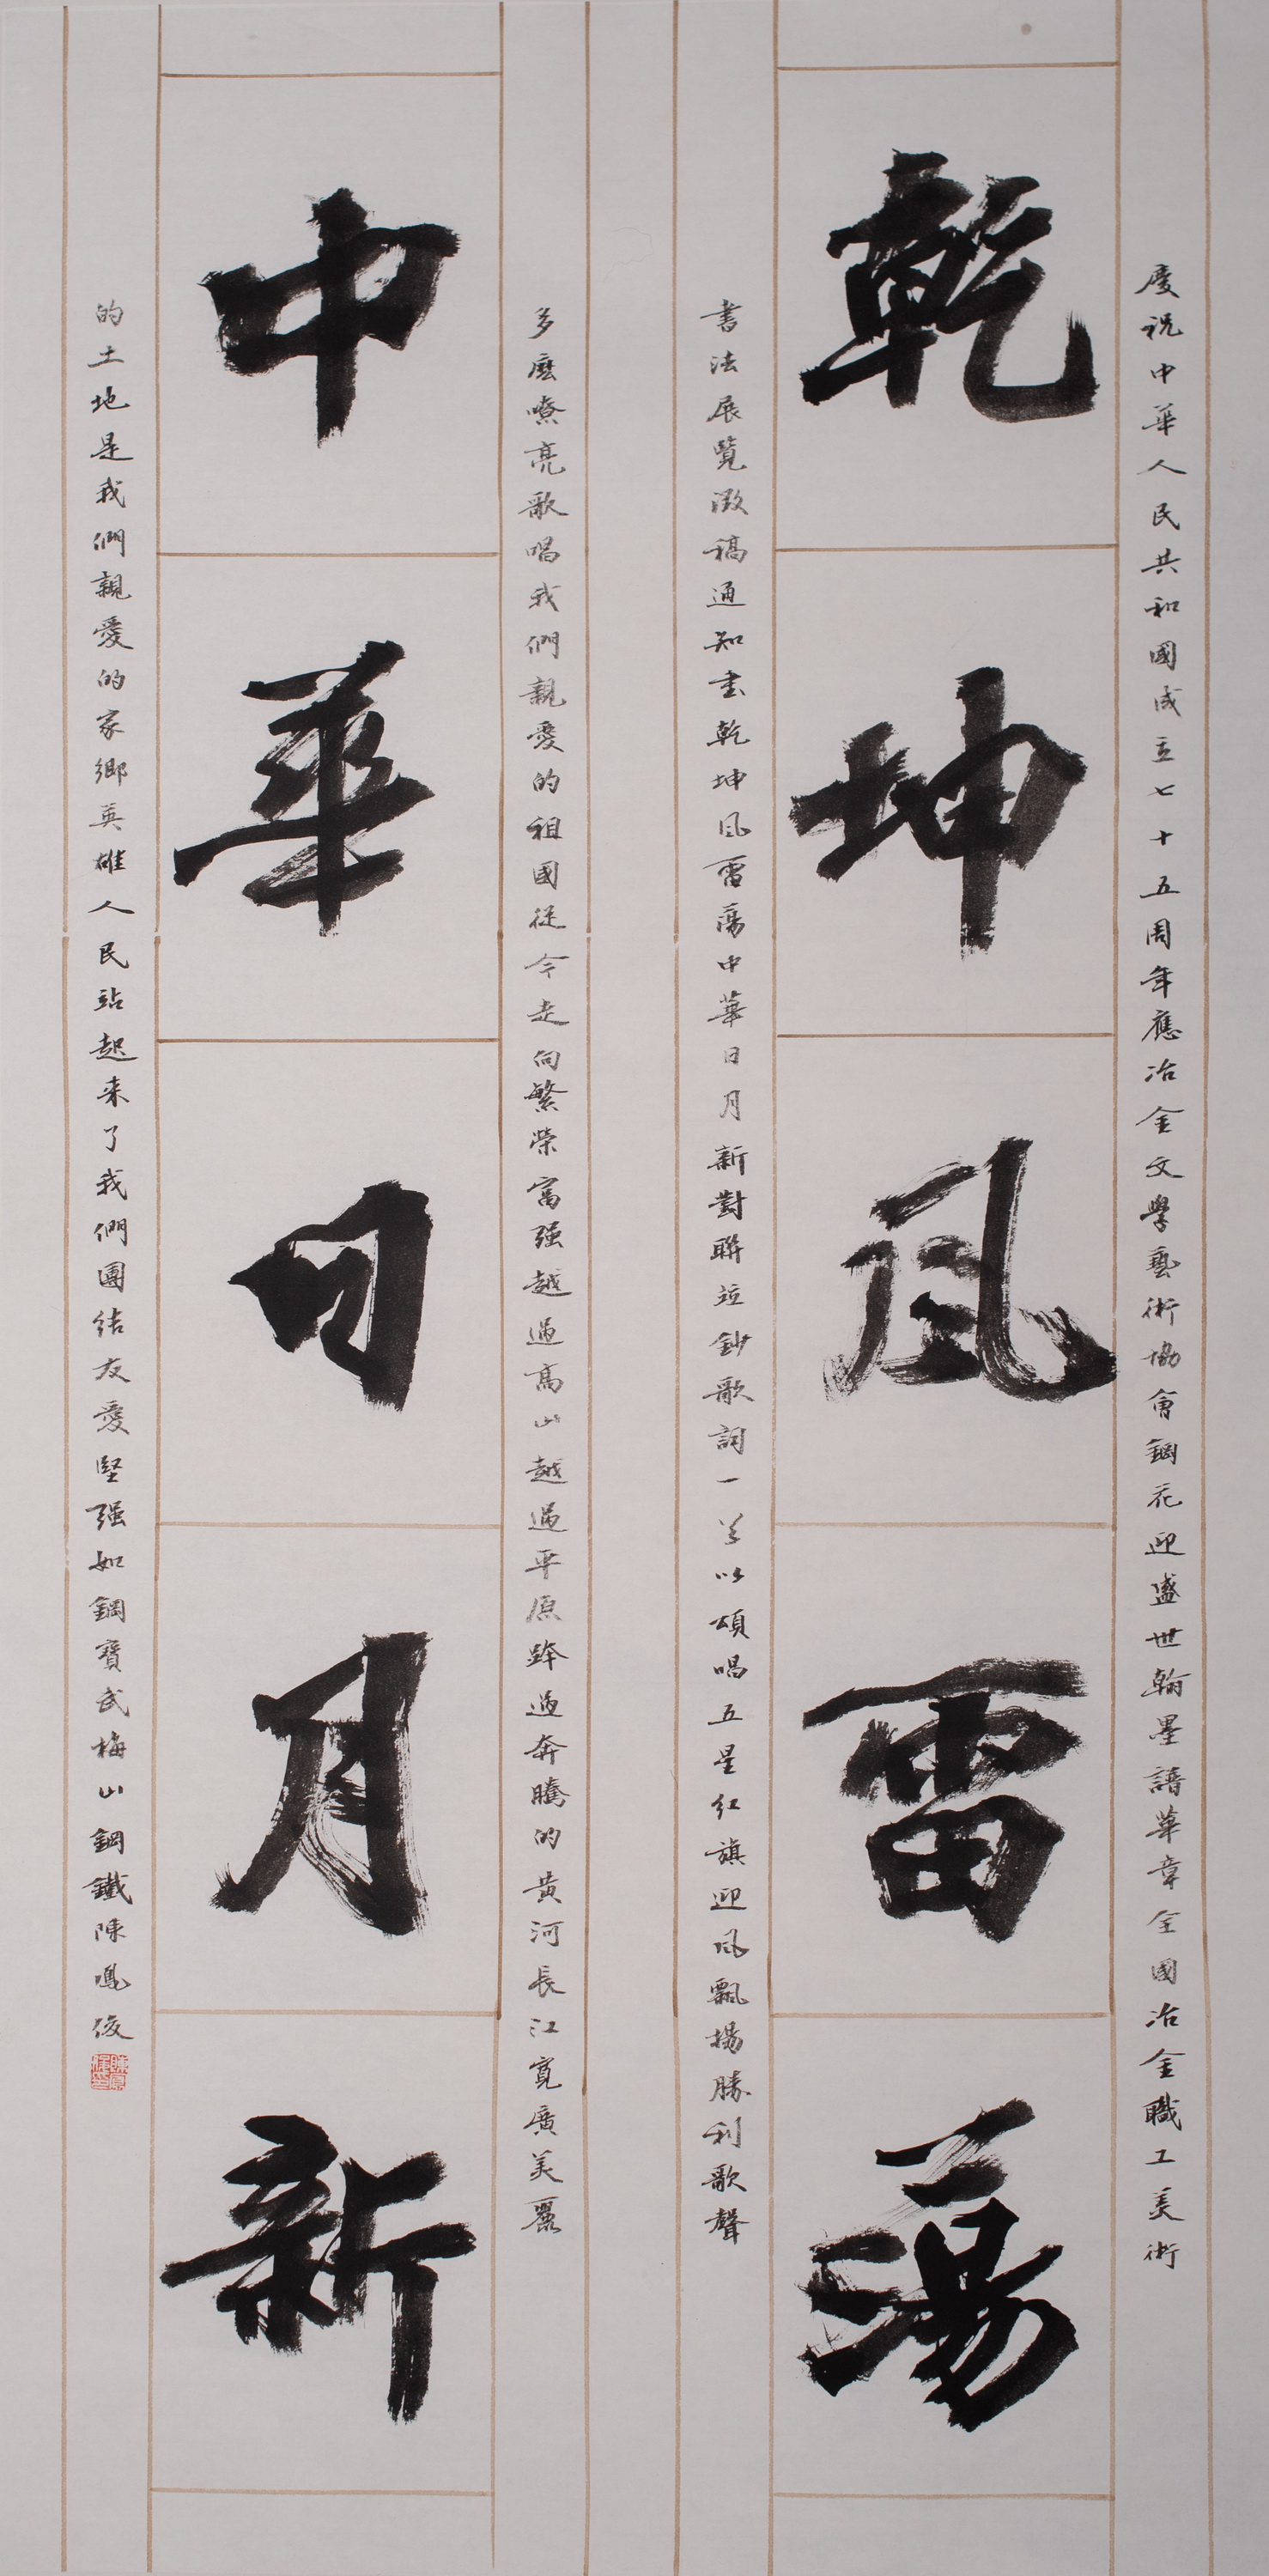 慶祝中華人民共和國成立七十五周年應冶金文學藝術協會鋼花迎盛世翰墨譜華章全國冶金職工美術
乾坤風雷蕩
書法展覽徵稿通知書乾坤風雷蕩中華日月新對聯並鈔歌詞一首以頌唱五星红旗迎風飄揚勝利歌聲
多麼嘹亮歌唱我們親愛的祖國從今走向繁榮富强越過高山越過平原跨過奔騰的黄河長江寬廣美麗
中華日月新
的土地是我們親愛的家鄉英雄人民站起来了我們團结友愛堅强如鋼寶武梅山鋼鐵陳鳳俊